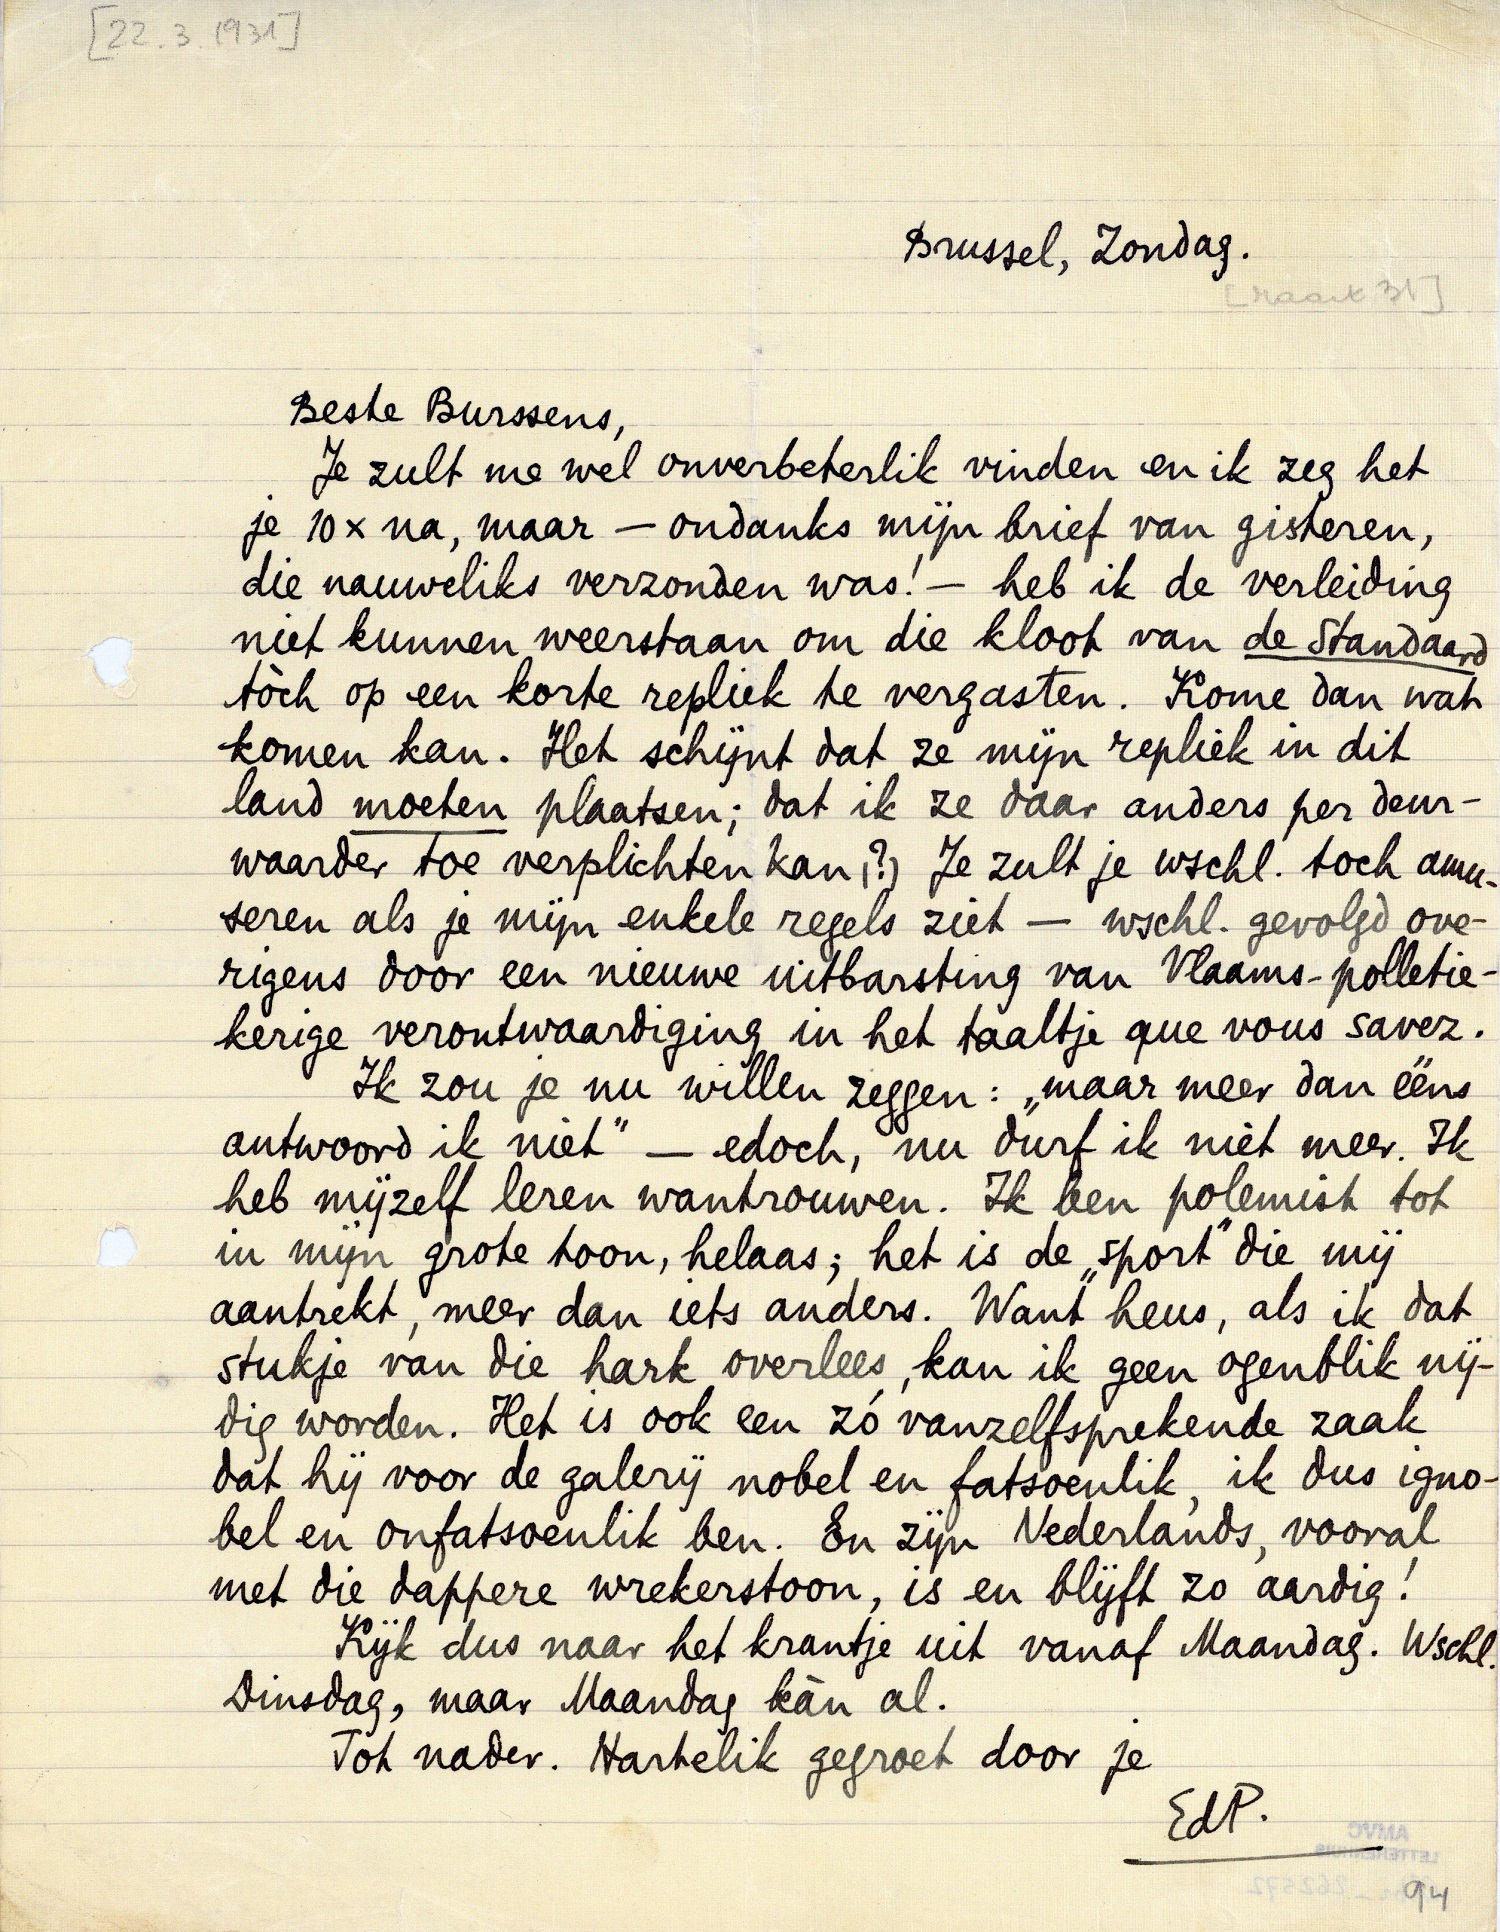 [22.3.1931]
Brussel, Zondag.
[maart 31]
Beste Burssens,
Je zult me wel onverbeterlik vinden en ik zeg het
je 10x na, maar — ondanks mijn brief van gisteren,
die nauweliks verzonden was! — heb ik de verleiding
niet kunnen weerstaan om die kloot van de Standaard
tòch op een korte repliek te vergasten. Kome dan wat
komen kan. Het schijnt dat ze mijn repliek in dit
land moeten plaatsen; dat ik ze daar anders per deur-
waarder toe verplichten kan (?) Je zult je wschl. toch amu-
seren als je mijn enkele regels ziet — wschl. gevolgd ove-
rigens door een nieuwe uitbarsting van Vlaams-polletie-
kerige verontwaardiging in het taaltje que vous savez.
Ik zou je nu willen zeggen: „maar meer dan ééns
antwoord ik niet" — edoch, nu durf ik niet meer. Ik
heb mijzelf leren wantrouwen. Ik ben polemist tot
in mijn grote toon, helaas; het is de „sport" die mij
aantrekt, meer dan iets anders. Want heus, als ik dat
stukje van die hark overlees, kan ik geen ogenblik nij-
dig worden. Het is ook een zó vanzelfsprekende zaak
dat hij voor de galerij nobel en fatsoenlik, ik dus igno-
bel en onfatsoenlik ben. En zijn Nederlands, vooral
met die dappere wrekerstoon, is en blijft zo aardig!
Kijk dus naar het krantje uit vanaf Maandag. Wschl.
Dinsdag, maar Maandag kàn al.
Tot nader. Hartelik gegroet door je
EdP.
AMVC
LETTERENHUIS
94